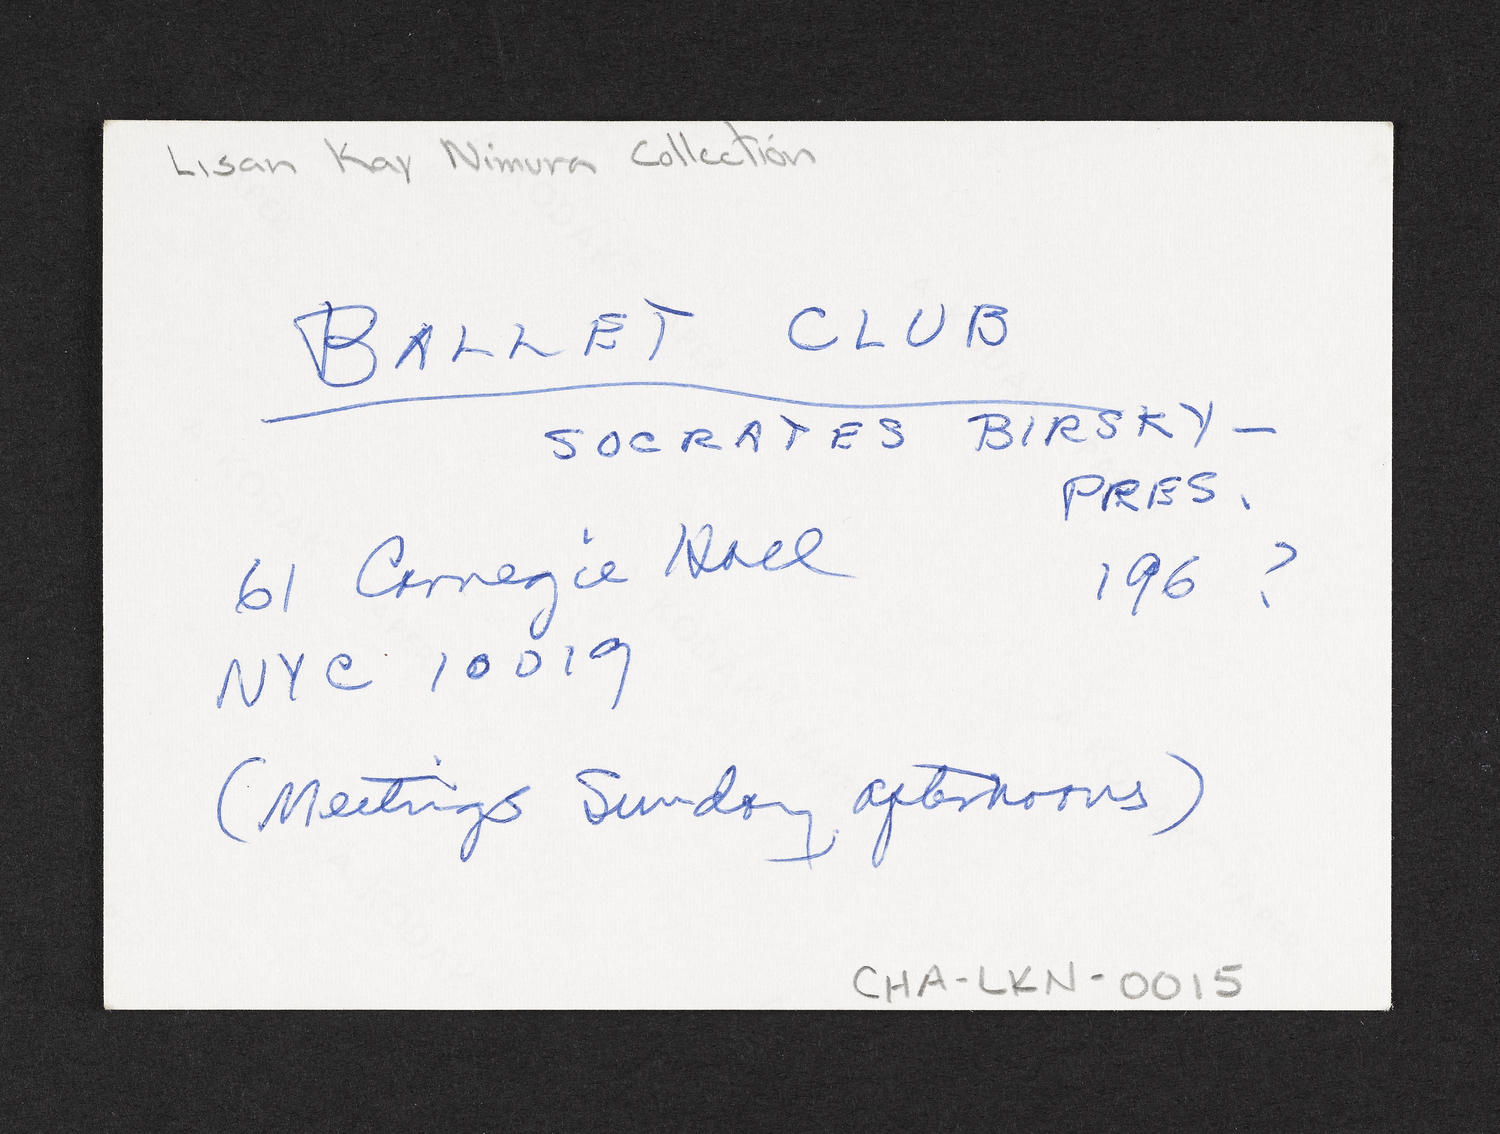 Lisan Kay Nimura Collection
BALLET CLUB
SOCRATES BIRSKY —
PRES.
61 Carnegie Hall
196 ?
NYC 10019
(Meetings Sunday afternoons)
CHA-LKN-0015